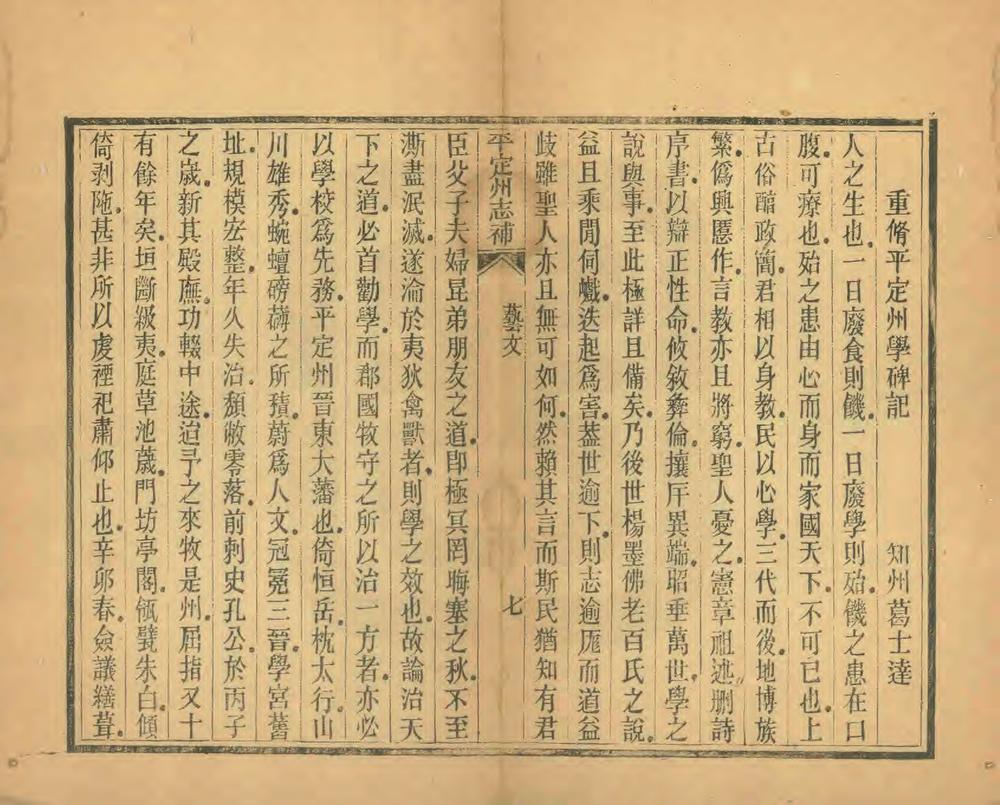 重脩平定州學碑記　知州葛士達
人之生也一日廢食則饑一日廢學則殆饑之患在口
腹可療也殆之患由心而身而家國天下不可已也上
古俗醕政簡君相以身教民以心學三代而後地博族
繁僞興慝作言教亦且將窮聖人憂之憲章祖述删詩
序書以辯正性命攸敘彝倫攘斥異端昭垂萬世學之
說與事至此極詳且備矣乃後世楊墨佛老百氏之說
益且乘閒伺巇迭起爲害葢世逾下則志逾厖而道益
歧雖聖人亦且無可如何然賴其言而斯民猶知有君
平定州志補　藝文　七
臣父子夫婦昆弟朋友之道卽極冥罔晦塞之秋不至
澌盡泯滅遂淪於夷狄禽獸者則學之效也故論治天
下之道必首勸學而郡國牧守之所以治一方者亦必
以學校爲先務平定州晉東大藩也倚恒岳枕太行山
川雄秀蜿蟺磅礴之所積蔚爲人文冠冕三晉學宮舊
址規模宏整年久失治頹敝零落前刺史孔公於丙子
之歲新其殿廡功輟中途迨予之來牧是州屈指又十
有餘年矣垣斷級夷庭草池薉門坊亭閣瓴甓朱白傾
倚剥阤甚非所以虔禋祀肅仰止也辛卯春僉議繕葺